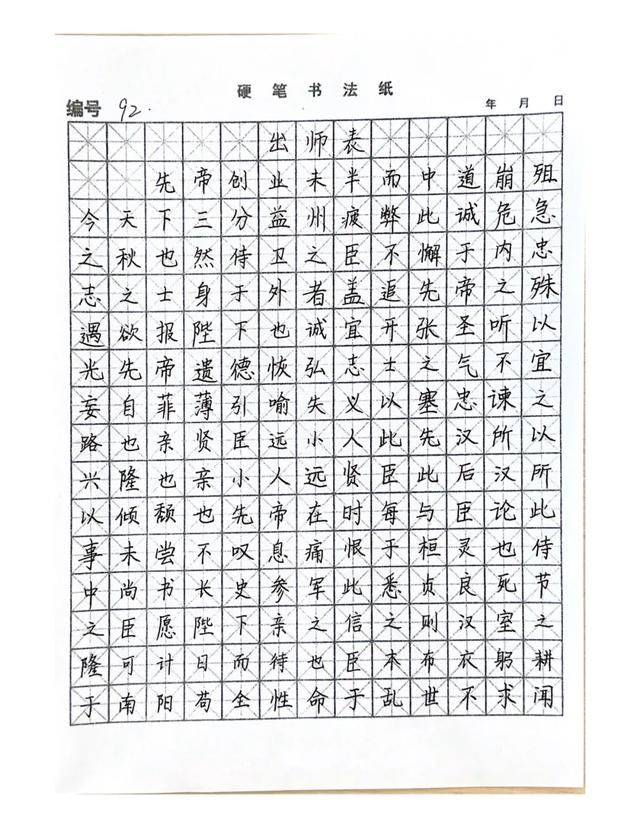 硬笔书法纸
编号 92. 年 月 日
出师表
先帝创业未半而中道崩殂
今天下三分益州疲弊此诚危急
之秋也然侍卫之臣不懈于内忠
志之士身于外者盖追先帝之殊
遇欲报陛下也诚宜开张圣听以
光先帝遗德恢弘志士之气不宜
妄自菲薄引喻失义以塞忠谏之
路也亲贤臣远小人此先汉所以
兴隆也亲小人远贤臣此后汉所
以倾颓也先帝在时每与臣论此
事未尝不叹息痛恨于桓灵也侍
中尚书长史参军此悉贞良死节
之臣愿陛下亲之信之则汉室之
隆可计日而待也臣本布衣躬耕
于南阳苟全性命于乱世不求闻